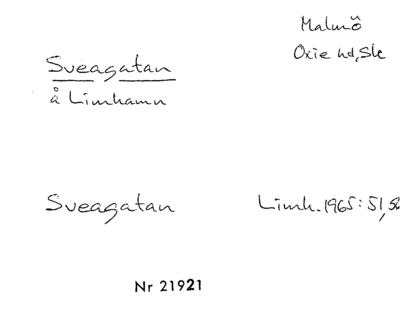 Malmö
Oxie hd, Sk
Sveagatan
å Limhamn
Sveagatan Limh. 1965: 51, 56
Nr 21921